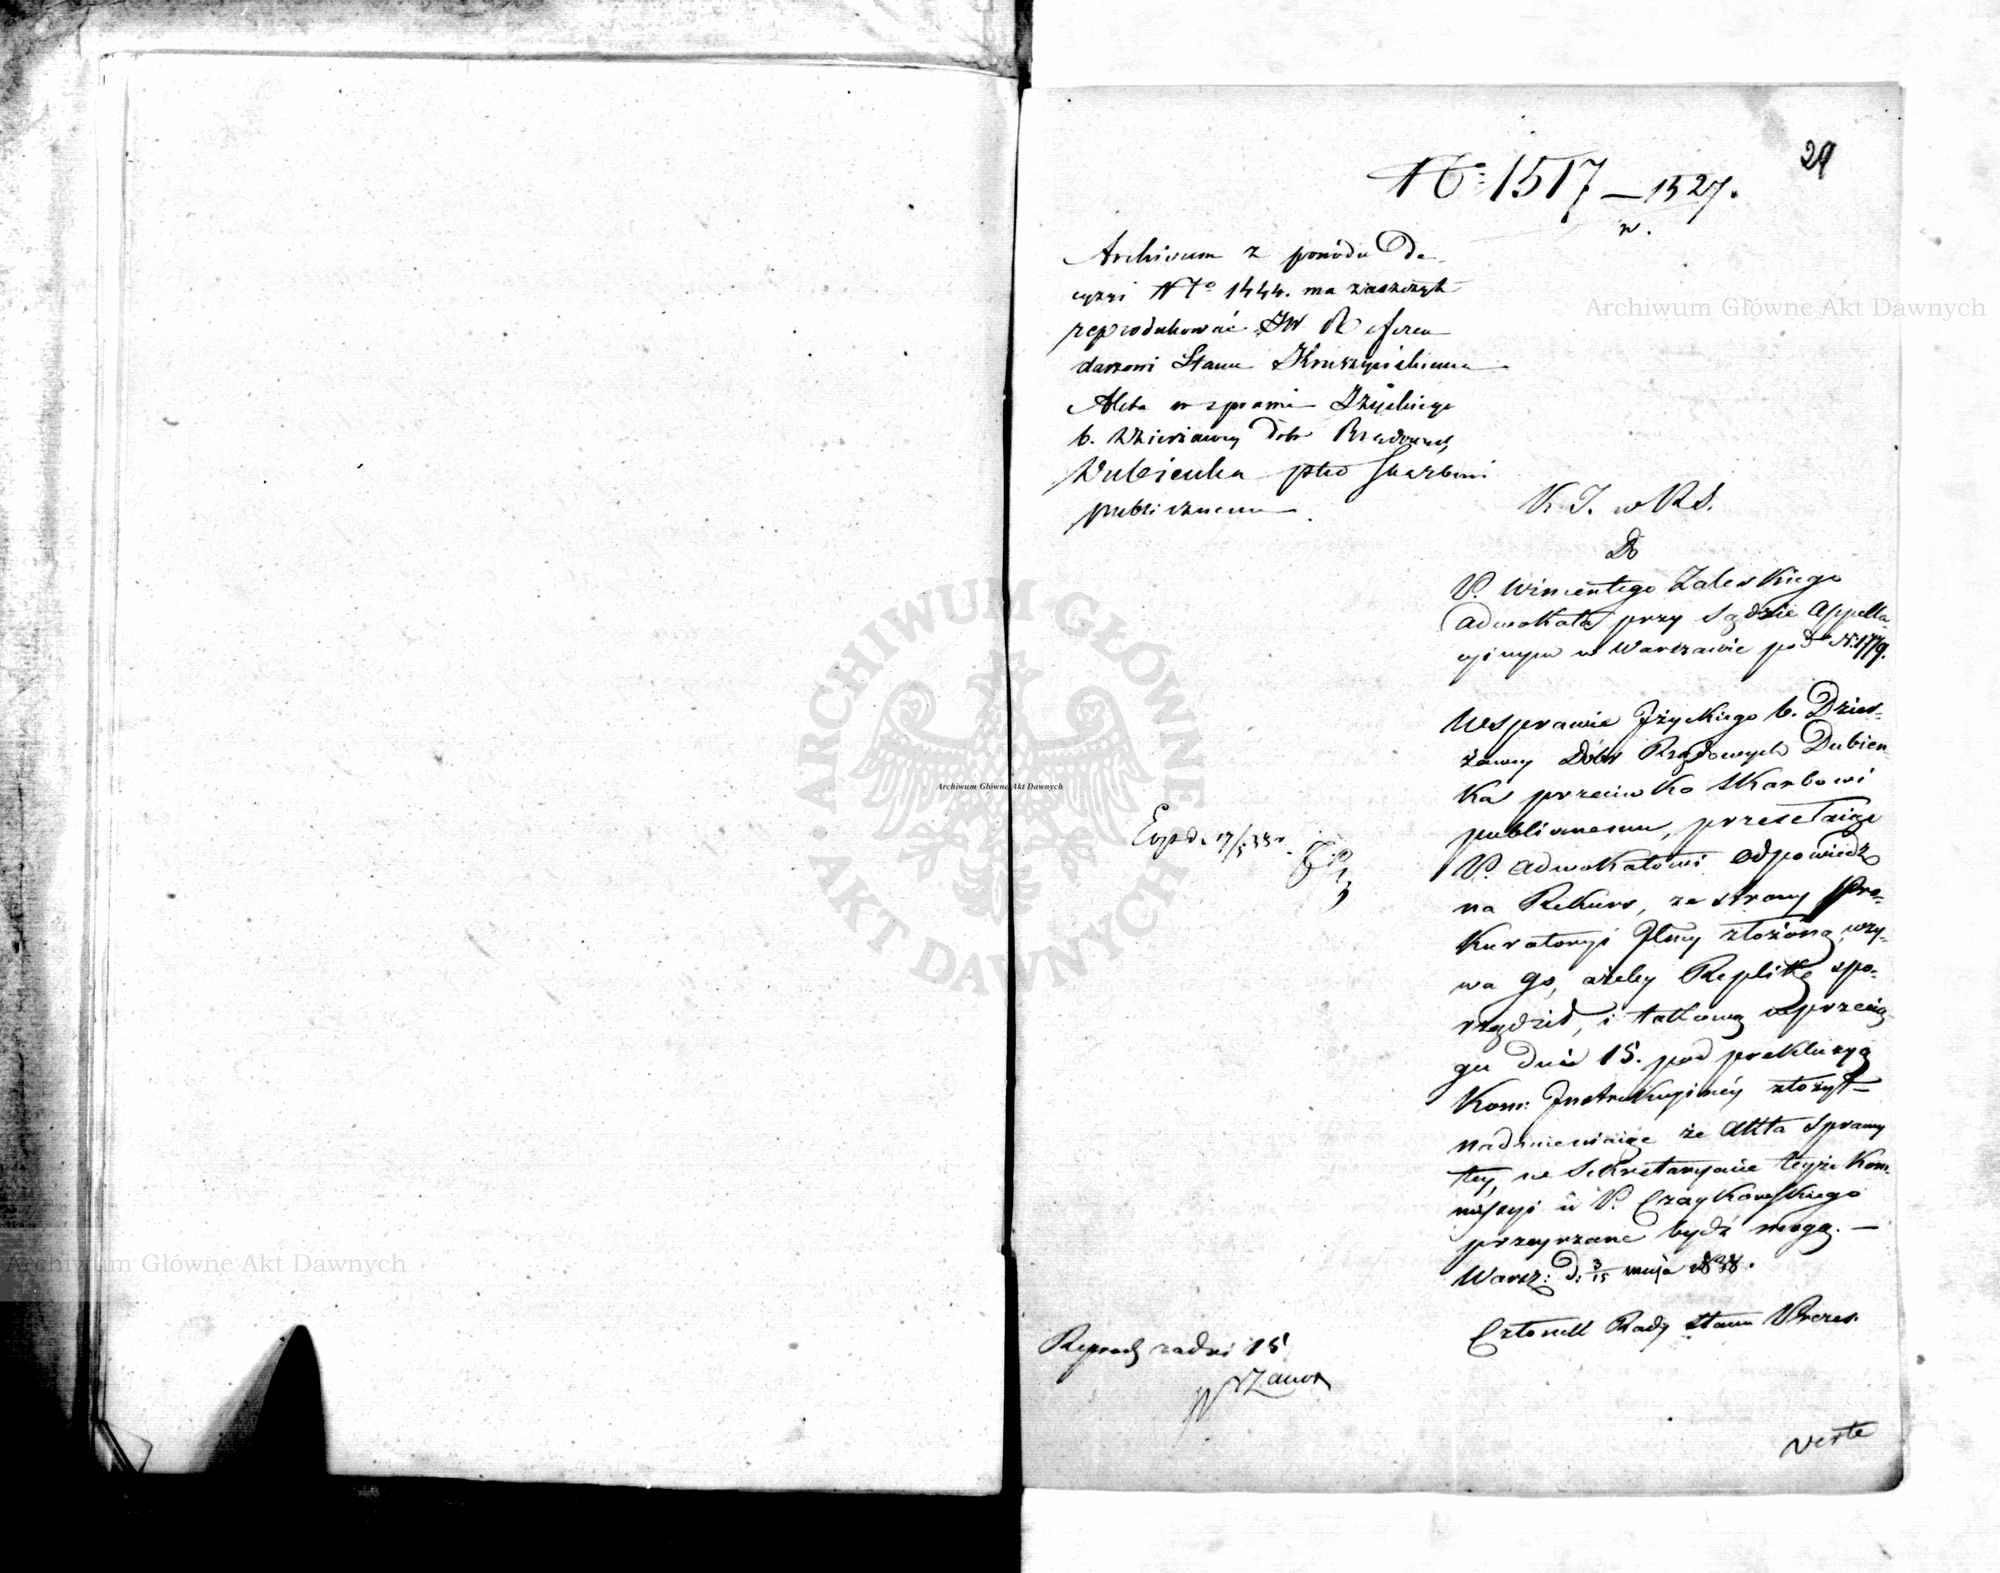 29
No 1517 — 1527.
w.
Archivum z powodu De-
cyzyi No 1444. ma zaszczyt
reprodukować JW Referen
darzowi Stanu Kruszyńskiemu
Akta w sprawie Iżyckiego
b. Dzierżawcy dobr Rządowych
Dubienka ptko Skarbowi
publicznemu
K. I. w R S.
Do
P. Wincentego Zaleskiego
Adwokata przy Sądzie Appella-
cyinym w Warszawie pod N. 1779.
W sprawie Iżyckiego b. Dzier-
żawcy Dóbr Rządowych Dubien
ka przeciwko Skarbowi
publicznemu, przesełaiąc
P. Adwokatowi odpowiedź
na Rekurs, ze strony Pro-
kuratoryi Jlney złożoną, wzy-
wa go, ażeby Replikę spo-
rządził, i takową w przecią-
gu dni 15. pod prekluzyą
Kom: Instrukcyinéy złożył —
nadmieniaiąc że Akta sprawy
tey, w Sekretaryacie teyże Kom-
missyi u P. Czaykowskiego
przeyrzane bydź mogą. —
Warsz: d: 3/15 maja 1838.
Członek Rady Stanu Prezes.
Exped. 17/5 38 r.
Reprod. za dni 15
verte
Archiwum Główne Akt Dawnych
ARCHIWUM GŁÓWNE AKT DAWNYCH
Archiwum Główne Akt Dawnych
Archiwum Główne Akt Dawnych